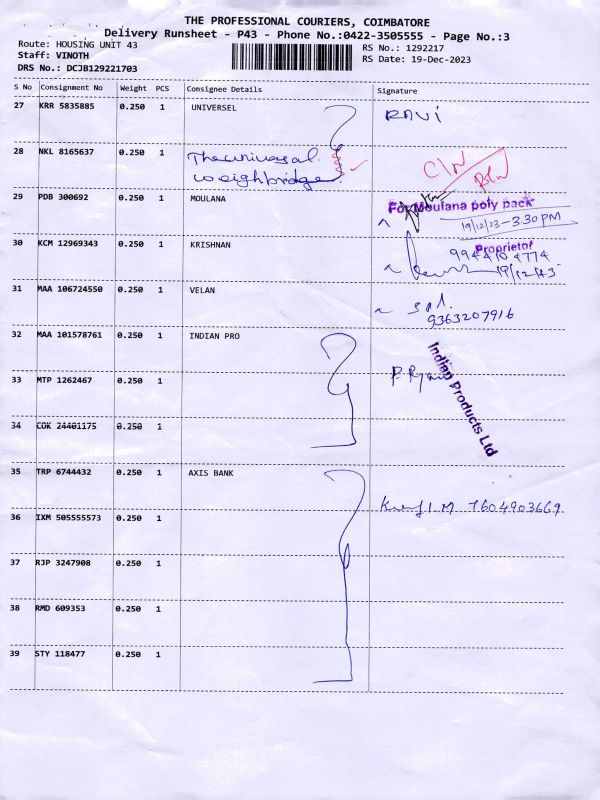 THE PROFESSIONAL COURIERS, COIMBATORE
Delivery Runsheet - P43 - Phone No.:0422-3505555 - Page No.:3
Route: HOUSING UNIT 43 RS No.: 1292217
Staff: VINOTH RS Date: 19-Dec-2023
DRS No.: DCJB129221703
S No Consignment No Weight PCS Consignee Details Signature
27 KRR 5835885 0.250 1 UNIVERSEL RAVI
28 NKL 8165637 0.250 1 The univasal
weighbridge C/N
29 PDB 300692 0.250 1 MOULANA For Moulana poly pack
19/12/23 - 3.30 PM
Proprietor
30 KCM 12969343 0.250 1 KRISHNAN
19/12/23
31 MAA 106724550 0.250 1 VELAN
9363207916
32 MAA 101578761 0.250 1 INDIAN PRO
Indian Products Ltd
33 MTP 1262467 0.250 1
34 COK 24401175 0.250 1
35 TRP 6744432 0.250 1 AXIS BANK
7604903669
36 IXM 505555573 0.250 1
37 RJP 3247908 0.250 1
38 RMD 609353 0.250 1
39 STY 118477 0.250 1